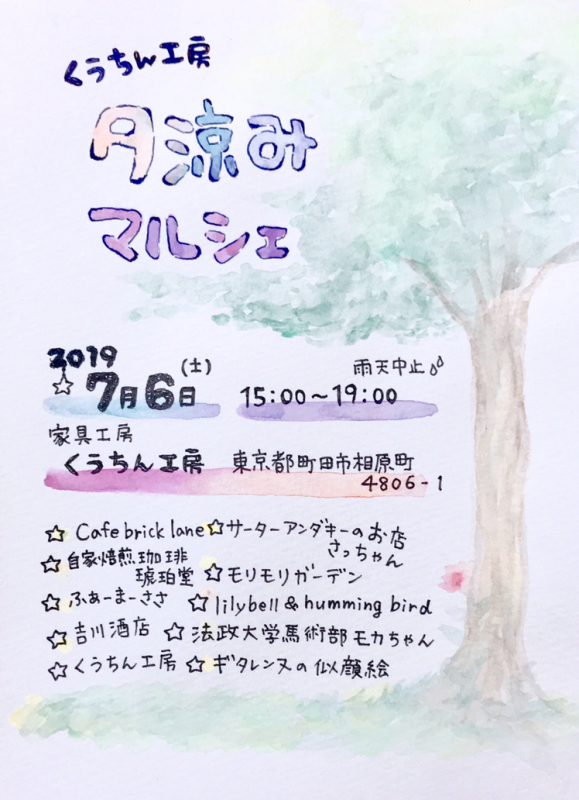 くうちん工房
夕涼み
マルシェ
2019
☆7月6日(土) 15:00〜19:00 雨天中止
家具工房
くうちん工房 東京都町田市相原町
4806-1
☆ Cafe brick lane ☆サーターアンダギーのお店
さっちゃん
☆自家焙煎珈琲
琥珀堂 ☆モリモリガーデン
☆ふぁーまーささ ☆lilybell & humming bird
☆吉川酒店 ☆法政大学馬術部モカちゃん
☆くうちん工房 ☆ギタレンヌの似顔絵